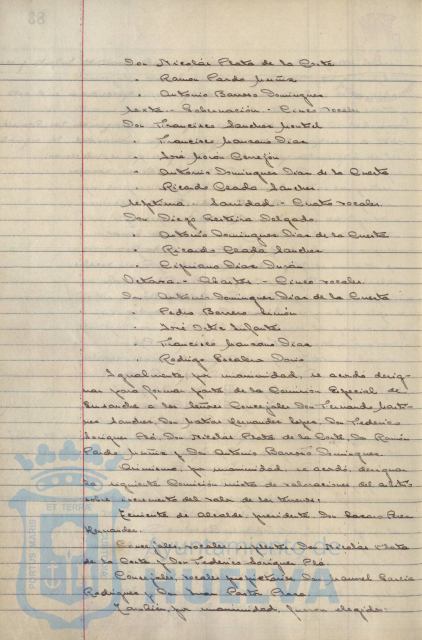 Don Nicolás Plata de la Corte
" Ramon Pardo Muñiz
" Antonio Barroso Dominguez
Sexta.- Gobernación - Cinco vocales
Don Francisco Sanchez Montiel
" Francisco Manzano Diaz
" José Morón Cerrejón
" Antonio Dominguez Diaz de la Cuesta
" Ricardo Ceada Sanchez
Septima.- Sanidad - Cuatro vocales.
Don Diego Delgado
" Antonio Dominguez Diaz de la Cuesta
" Ricardo Ceada Sanchez
" Cipriano Diaz Durán
Octava.- Abastos - Cinco vocales.
Don Antonio Dominguez Diaz de la Cuesta
" Pedro Barrero Simón
" José Ortiz Infante
" Francisco Manzano Diaz
" Rodrigo
Igualmente, por unanimidad, se acordó desig-
nar para formar parte de la Comisión Especial de
Ensanche a los señores Concejales Don Fernando Marti-
nez Sanchez, Don Matias Hernandez López, Don Federico
Don Nicolás Plata de la Corte, Don Ramón
Pardo Muñiz y Don Antonio Barroso Dominguez.
Asimismo, por unanimidad, se acordó, designar
la siguiente Comisión mixta de valoraciones del
sobre incremento del valor de los terrenos:
Teniente de Alcalde, presidente, Don
Hernandez.
Concejales vocales Don Nicolás Plata
de la Corte y Don Federico
Concejales, vocales propietarios Don Manuel Garcia
Rodriguez y Don Juan
También, por unanimidad, fueron elegidos:
88
PORTUS MARIS ET TERRAE
Ayuntamiento de
HUELVA